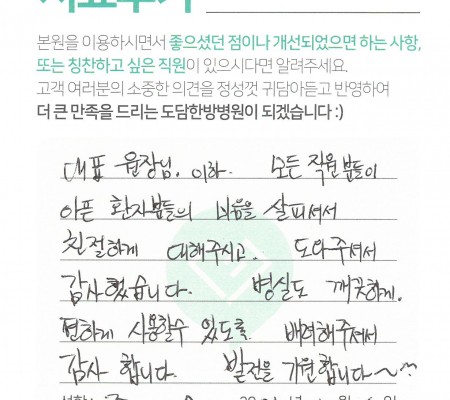 치료후기
본원을 이용하시면서 좋으셨던 점이나 개선되었으면 하는 사항,
또는 칭찬하고 싶은 직원이 있으시다면 알려주세요.
고객 여러분의 소중한 의견을 정성껏 귀담아듣고 반영하여
더 큰 만족을 드리는 도담한방병원이 되겠습니다 :)
대표 원장님. 이하. 모든 직원분들이
아픈 환자분들의 마음을 살피셔서
친절하게 대해주시고. 도와주셔서
감사했습니다. 병실도 깨끗하게.
편하게 사용할수 있도록 배려해주셔서
감사 합니다. 발전을 기원합니다~^^